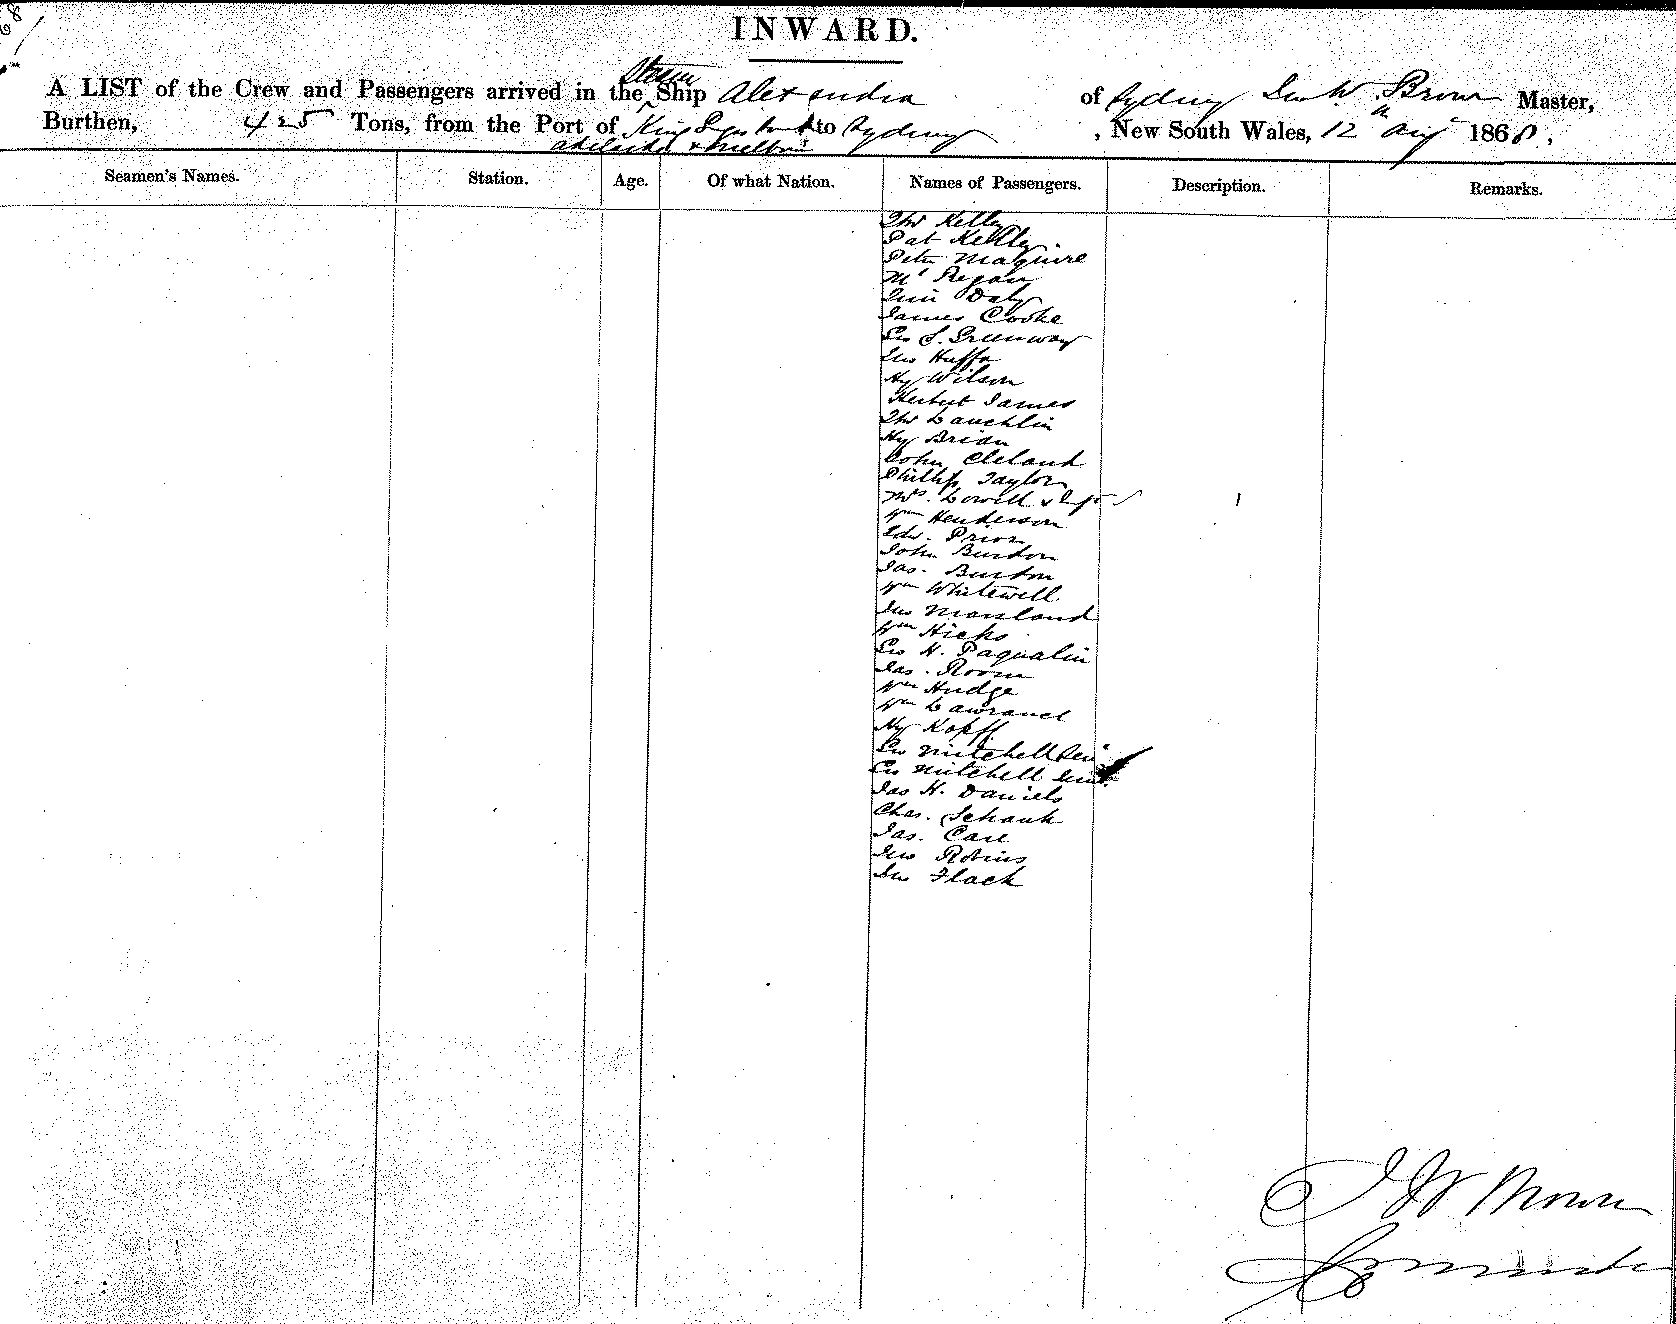 INWARD.
A LIST of the Crew and Passengers arrived in the Steam Ship Alexandra of Sydney Jno W. Brown Master,
Burthen, 425 Tons, from the Port of King Georges to Sydney, New South Wales, 12th Augt 1868.
Adelaide & Melbne
Seamen's Names. Station. Age. Of what Nation. Names of Passengers. Description. Remarks.
Thos Kelly
Pat Kelly
Peter Maguire
Ml Regan
Daly
James Cooke
Geo S. Greenway
Jno Huffa
Hy Wilson
Herbert James
Thos Lauchlin
Hy Brian
John Cleland
Phillip Taylor
Mrs. Lowell & Inft 1
Wm Henderson
Edw. Prior
John Burton
Jas. Burton
Wm Whitewell
Jno
Wm Hicks
Geo H. Paqualin
Jas. Room
Wm Hudge
Wm Lawrance
Hy Kopff
Geo Mitchell Senr
Geo Mitchell Junr
Jas H. Daniels
Chas. Schank
Jas. Care
Jno Robins
Jno Flack
J W Brown